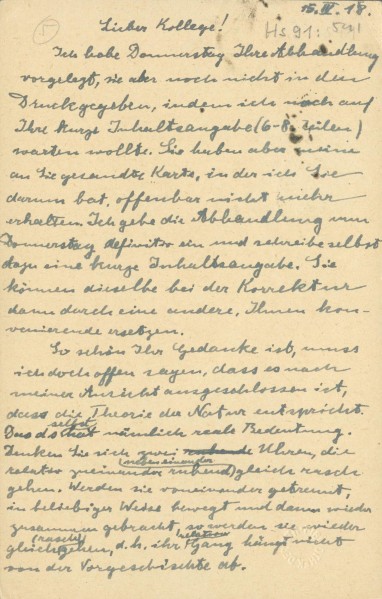 15. IV. 18.
Hs 91: 541
Lieber Kollege!
Ich habe Donnerstag Ihre Abhandlung
vorgelegt, sie aber noch nicht in den
Druck gegeben, indem ich noch auf
Ihre kurze Inhaltsangabe (6-8 Zeilen)
warten wollte. Sie haben aber meine
an Sie gesandte Karte, in der ich Sie
darum bat, offenbar nicht
erhalten. Ich gebe die Abhandlung nun
Donnerstag definitiv ein und schreibe selbst
dazu eine kurze Inhaltsangabe. Sie
können dieselbe bei der Korrektur
dann durch eine andere, Ihnen kon-
venierende ersetzen.
So schön Ihr Gedanke ist, muss
ich doch offen sagen, dass es nach
meiner Ansicht ausgeschlossen ist,
dass die Theorie der Natur entspricht.
Das ds selbst hat nämlich reale Bedeutung.
Denken Sie sich zwei ruhende Uhren, die
relativ zueinander ruhend (nebeneinander) gleich rasch
gehen. Werden sie voneinander getrennt,
in beliebiger Weise bewegt und dann wieder
zusammen gebracht, so werden sie wieder
gleich (rasch) gehen, d. h. ihr relativer Gang hängt nicht
von der Vorgeschichte ab.